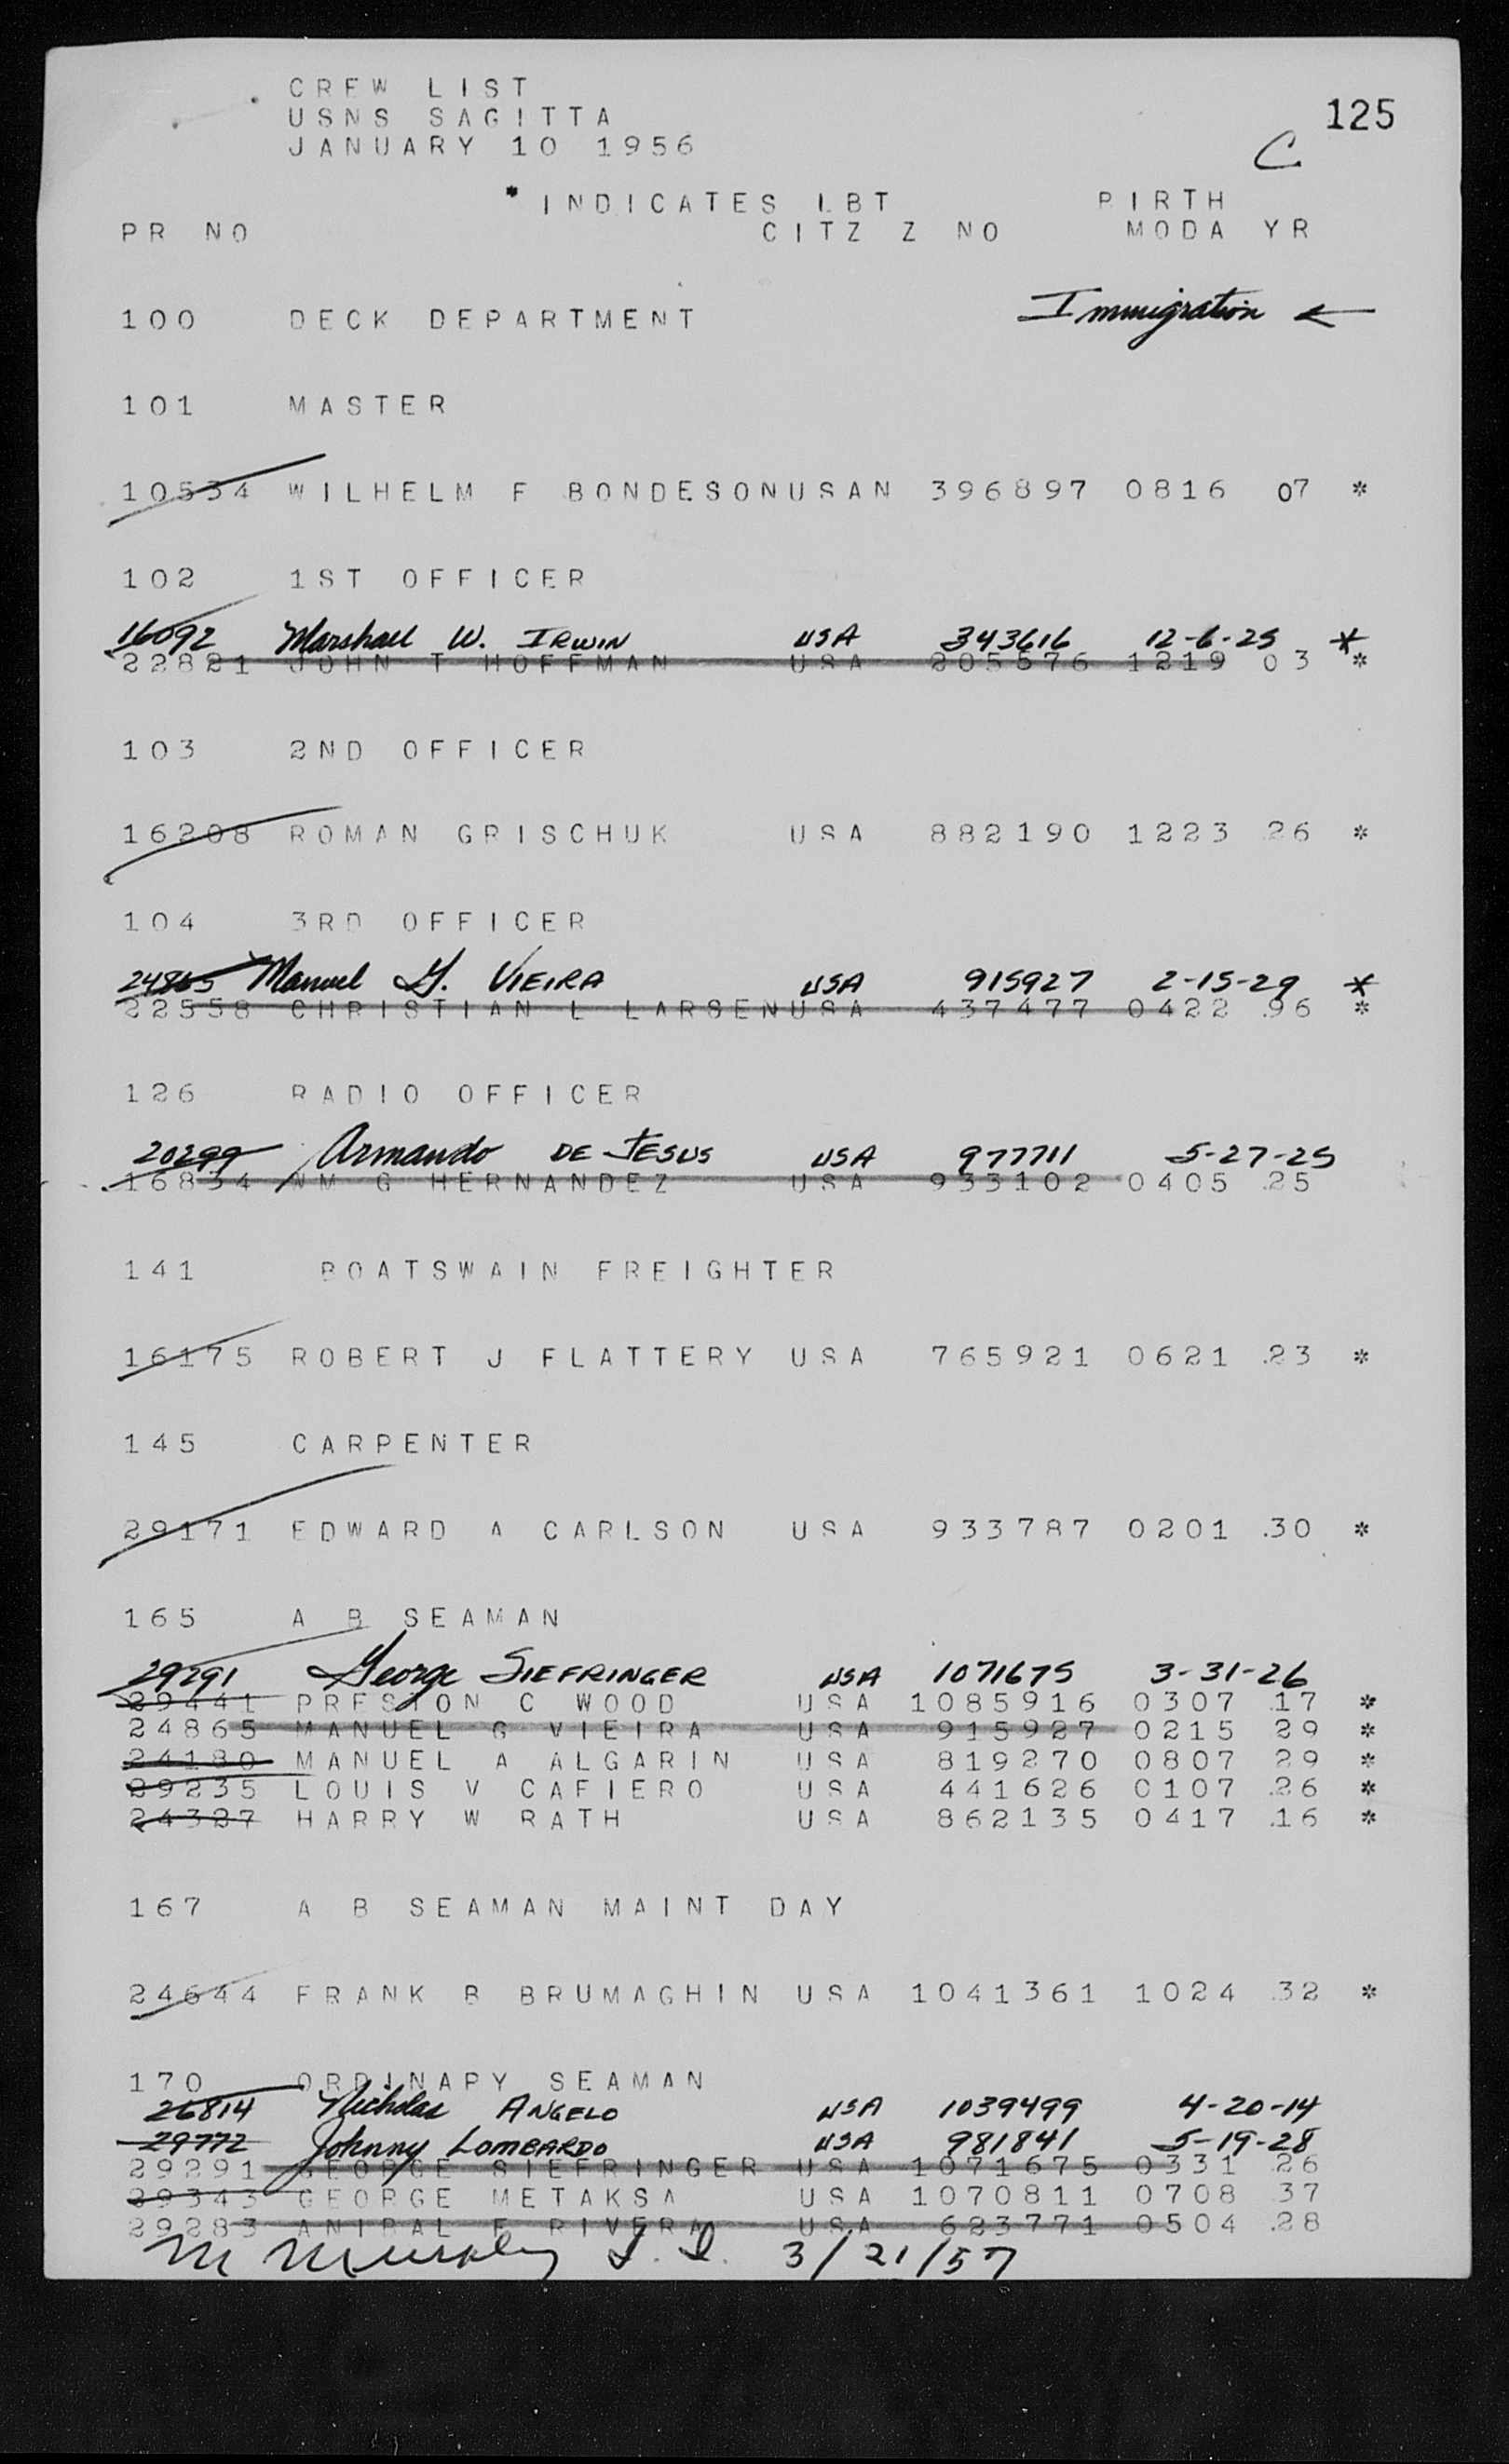 125
CREW LIST
USNS SAGITTA
JANUARY 10 1956
C
* INDICATES LBT BIRTH
PR NO CITZ Z NO MODA YR
100 DECK DEPARTMENT Immigration ←
101 MASTER
10534 WILHELM F BONDESONUSAN 396897 0816 07 *
102 1ST OFFICER
16092 Marshall W. IRWIN USA 343616 12-6-25 *
22821 JOHN T HOFFMAN USA 205576 1219 03 *
103 2ND OFFICER
16208 ROMAN GRISCHUK USA 882190 1223 26 *
104 3RD OFFICER
24865 Manuel G. VIEIRA USA 915927 2-15-29 *
22558 CHRISTIAN L LARSENUSA 437477 0422 96 *
126 RADIO OFFICER
20299 Armando DE JESUS USA 977711 5-27-25
16834 WM G HERNANDEZ USA 933102 0405 25
141 BOATSWAIN FREIGHTER
16175 ROBERT J FLATTERY USA 765921 0621 23 *
145 CARPENTER
29171 EDWARD A CARLSON USA 933787 0201 30 *
165 A B SEAMAN
29291 George SIEFRINGER USA 1071675 3-31-26
29441 PRESTON C WOOD USA 1085916 0307 17 *
24865 MANUEL G VIEIRA USA 915927 0215 29 *
24180 MANUEL A ALGARIN USA 819270 0807 29 *
29235 LOUIS V CAFIERO USA 441626 0107 26 *
24327 HARRY W RATH USA 862135 0417 16 *
167 A B SEAMAN MAINT DAY
24644 FRANK B BRUMAGHIN USA 1041361 1024 32 *
170 ORDINARY SEAMAN
26814 Nicholas ANGELO USA 1039499 4-20-14
29772 Johnny LOMBARDO USA 981841 5-19-28
29291 GEORGE SIEFRINGER USA 1071675 0331 26
29343 GEORGE METAKSA USA 1070811 0708 37
29283 ANIBAL F RIVERA USA 623771 0504 28
M Murphy I.I. 3/21/57